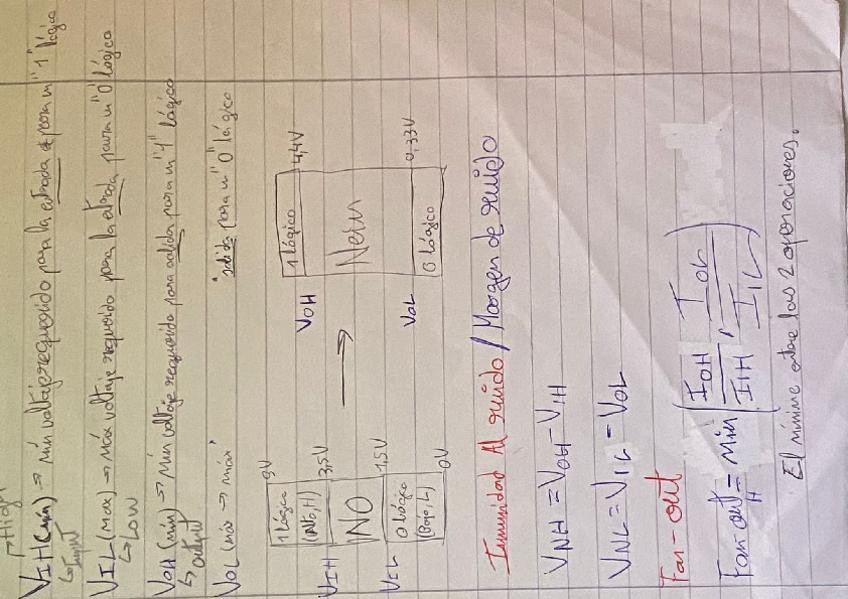 →High
VIH(mín) → mín voltaje requerido para la entrada para un "1" lógico
↳Input
VIL(max) → máx voltaje requerido para la entrada para un "0" lógico
↳Low
VOH(mín) → mín voltaje requerido para salida para un "1" lógico
↳output
VOL(máx → máx " " salida para un "0" lógico
1 lógico
(Alto, H)
VIH 3,5V
NO
VIL 1,5V
0 lógico
(Bajo, L)
0V
→
1 lógico
VOH 4,4V
VOL 0,33V
0 lógico
Inmunidad Al ruido / Margen de ruido
VNH = VOH - VIH
VNL = VIL - VOL
Fan-out
Fan-out = Min (IOH / IIH , IOL / IIL)
H
El mínimo entre las 2 operaciones.